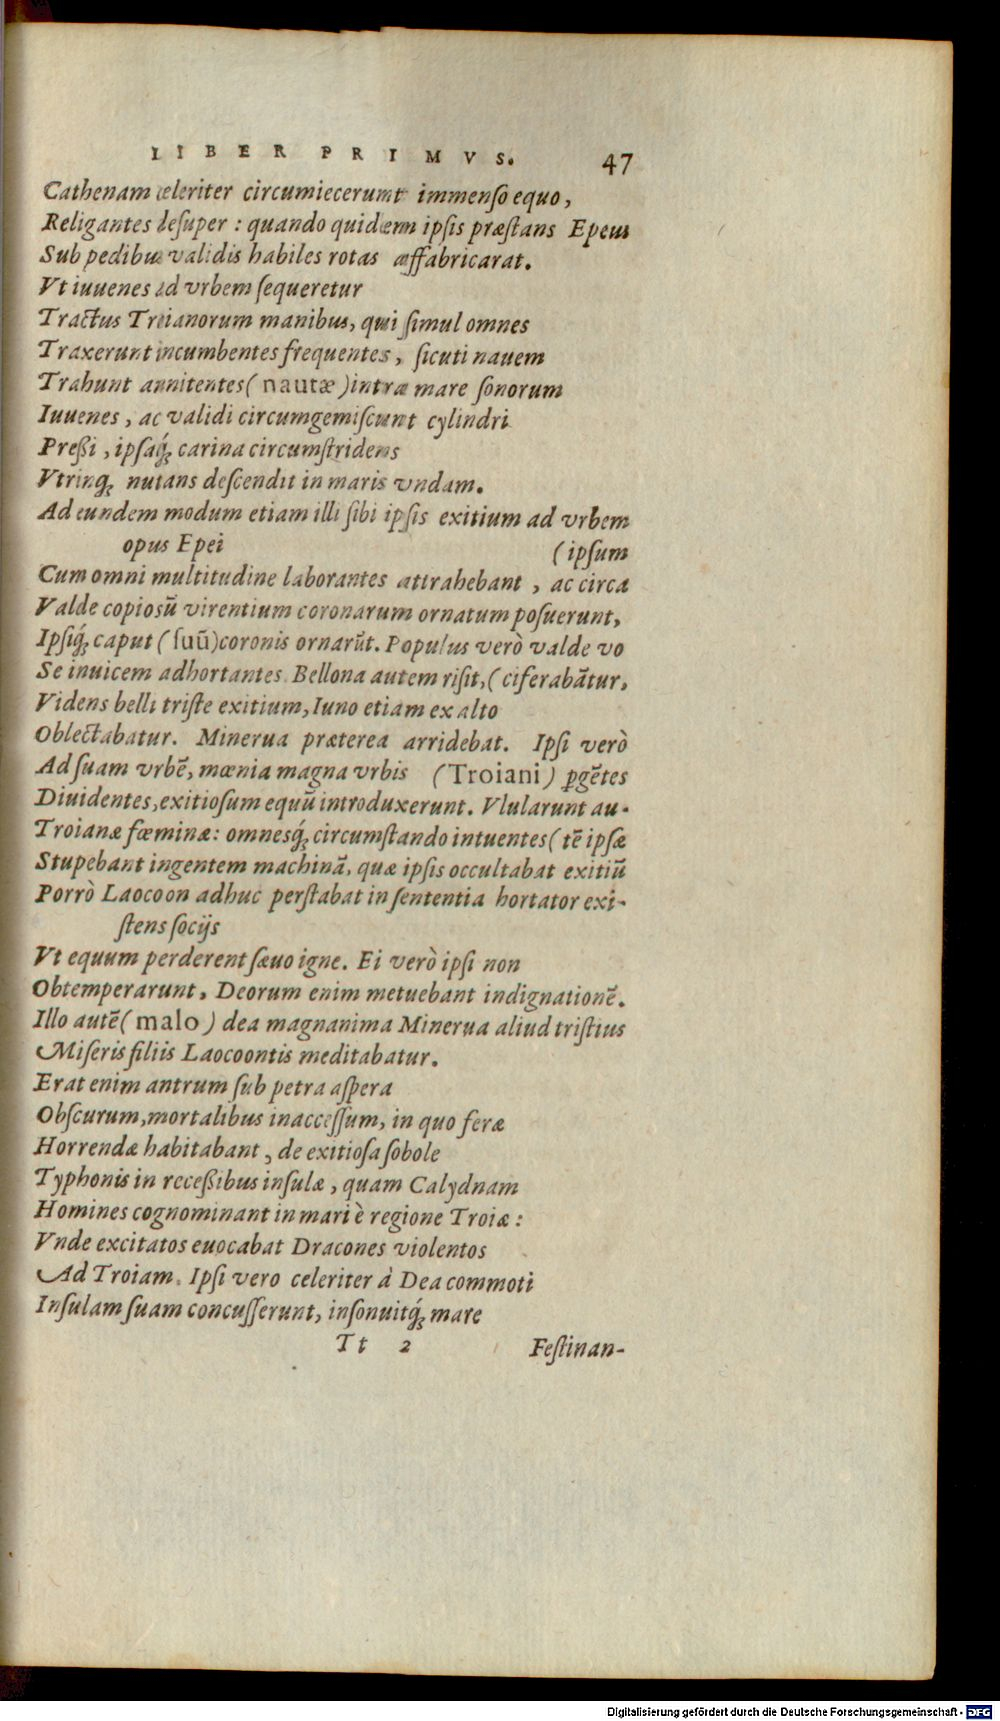 LIBER PRIMVS. 47
Cathenam celeriter circumiecerunt immenso equo,
Religantes desuper : quando quidem ipsis præstans Epeus
Sub pedibus validis habiles rotas affabricarat.
Vt iuuenes ad vrbem sequeretur
Tractus Troianorum manibus, qui simul omnes
Traxerunt incumbentes frequentes, sicuti nauem
Trahunt annitentes (nautæ) intra mare sonorum
Iuuenes, ac validi circumgemiscunt cylindri
Preßi, ipsaq́; carina circumstridens
Vtrinq; nutans descendit in maris vndam.
Ad eundem modum etiam illi sibi ipsis exitium ad vrbem
opus Epei (ipsum
Cum omni multitudine laborantes attrahebant, ac circa
Valde copiosũ virentium coronarum ornatum posuerunt,
Ipsiq́; caput (suũ) coronis ornarũt. Populus verò valde vo
Se inuicem adhortantes. Bellona autem risit, (ciferabãtur,
Videns belli triste exitium, Iuno etiam ex alto
Oblectabatur. Minerua præterea arridebat. Ipsi verò
Ad suam vrbẽ, mœnia magna vrbis (Troiani) ꝑgẽtes
Diuidentes, exitiosum equũ introduxerunt. Vlularunt au-
Troianæ fœminæ: omnesq́; circumstando intuentes (tẽ ipsæ
Stupebant ingentem machinã, quæ ipsis occultabat exitiũ
Porrò Laocoon adhuc perstabat in sententia hortator exi-
stens socijs
Vt equum perderent sæuo igne. Ei verò ipsi non
Obtemperarunt, Deorum enim metuebant indignationẽ.
Illo autẽ (malo) dea magnanima Minerua aliud tristius
Miseris filiis Laocoontis meditabatur.
Erat enim antrum sub petra aspera
Obscurum, mortalibus inaccessum, in quo feræ
Horrendæ habitabant, de exitiosa sobole
Typhonis in receßibus insulæ, quam Calydnam
Homines cognominant in mari è regione Troiæ:
Vnde excitatos euocabat Dracones violentos
Ad Troiam. Ipsi vero celeriter à Dea commoti
Insulam suam concusserunt, insonuitq́; mare
Tt 2 Festinan-
Digitalisierung gefördert durch die Deutsche Forschungsgemeinschaft - DFG